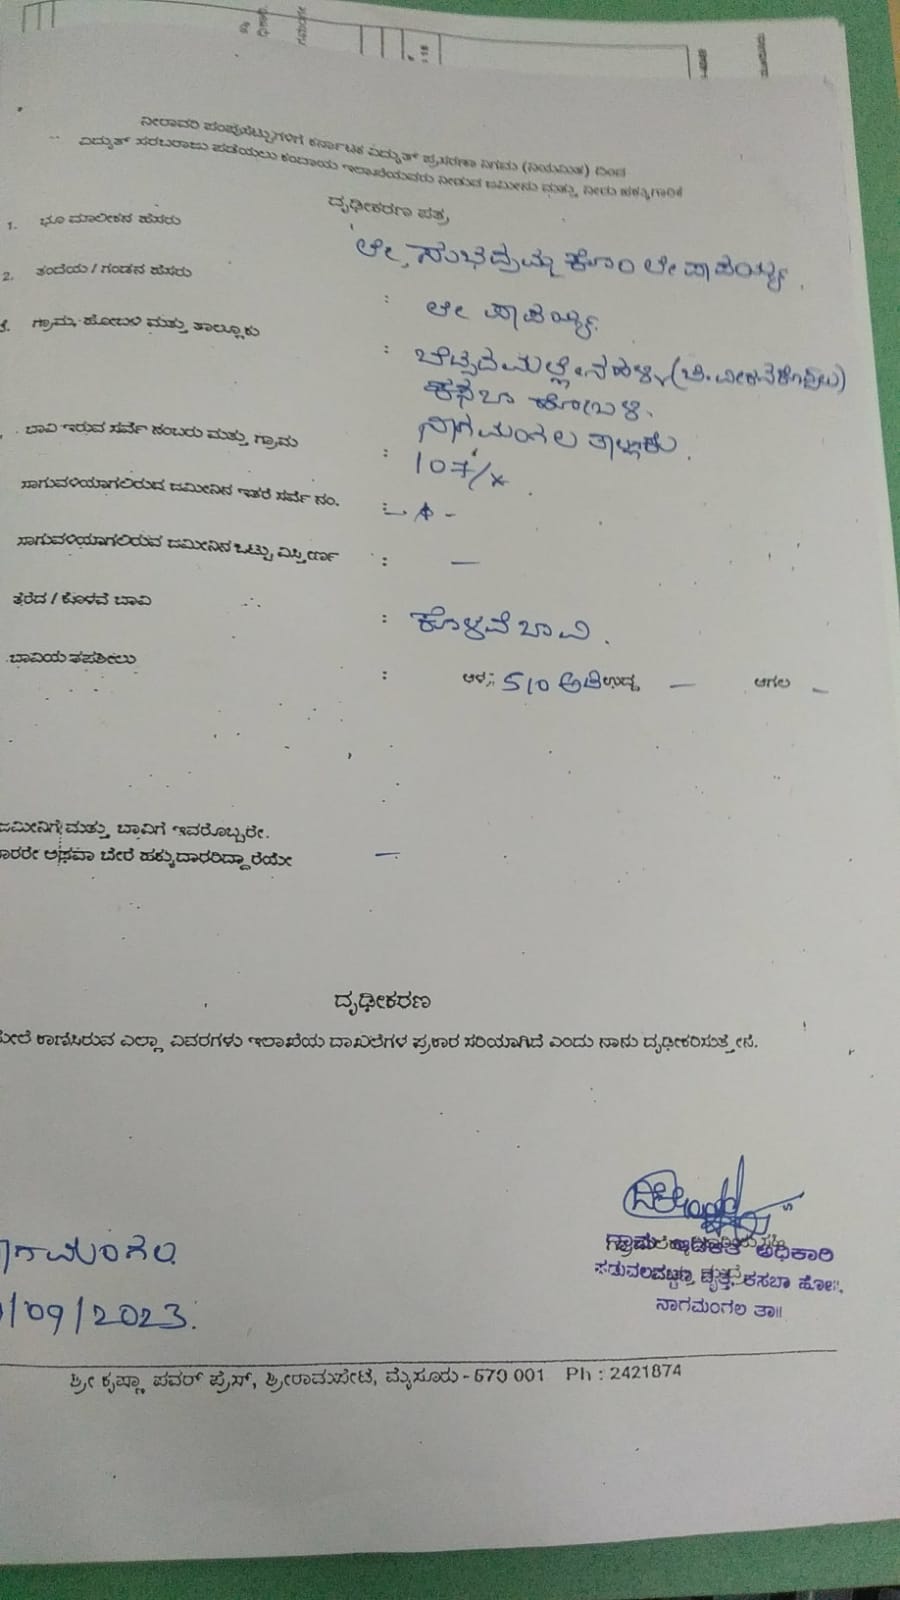 ನೀರಾವರಿ ಪಂಪುಸೆಟ್ಟುಗಳಿಗೆ ಕರ್ನಾಟಕ ವಿದ್ಯುತ್ ಪ್ರಸರಣಾ ನಿಗಮ (ನಿಯಮಿತ) ದಿಂದ
ವಿದ್ಯುತ್ ಸರಬರಾಜು ಪಡೆಯಲು ಕಂದಾಯ ಇಲಾಖೆಯವರು ನೀಡುವ ಜಮೀನು ಮತ್ತು ನೀರು ಹಕ್ಕುಗಾರಿಕೆ
ದೃಢೀಕರಣ ಪತ್ರ
1. ಭೂ ಮಾಲೀಕನ ಹೆಸರು
ಲೇ, ಸುಭದ್ರಮ್ಮ ಕೋಂ ಲೇ ಪಾಪಯ್ಯ.
2. ತಂದೆಯ / ಗಂಡನ ಹೆಸರು : ಲೇ ಪಾಪಯ್ಯ
ಗ್ರಾಮ, ಹೋಬಳಿ ಮತ್ತು ತಾಲ್ಲೂಕು : ಬೆಟ್ಟದಮಲ್ಲೇನಹಳ್ಳಿ
ಕಸಬಾ ಹೋಬಳಿ.
ನಾಗಮಂಗಲ ತಾಲ್ಲೂಕು.
ಬಾವಿ ಇರುವ ಸರ್ವೆ ನಂಬರು ಮತ್ತು ಗ್ರಾಮ : 107/*
ಸಾಗುವಳಿಯಾಗಲಿರುವ ಜಮೀನಿನ ಇತರೆ ಸರ್ವೆ ನಂ. :
ಸಾಗುವಳಿಯಾಗಲಿರುವ ಜಮೀನಿನ ಒಟ್ಟು ವಿಸ್ತೀರ್ಣ : —
ತೆರೆದ / ಕೊಳವೆ ಬಾವಿ : ಕೊಳವೆ ಬಾವಿ.
ಬಾವಿಯ ತಪಶೀಲು : ಆಳ: 510 ಅಡಿ ಉದ್ದ — ಅಗಲ —
ಜಮೀನಿಗೆ ಮತ್ತು ಬಾವಿಗೆ ಇವರೊಬ್ಬರೇ.
ಅಥವಾ ಬೇರೆ ಹಕ್ಕುದಾರರಿದ್ದಾರೆಯೇ —
ದೃಢೀಕರಣ
ಮೇಲೆ ಕಾಣಿಸಿರುವ ಎಲ್ಲಾ ವಿವರಗಳು ಇಲಾಖೆಯ ದಾಖಲೆಗಳ ಪ್ರಕಾರ ಸರಿಯಾಗಿದೆ ಎಂದು ನಾನು ದೃಢೀಕರಿಸುತ್ತೇನೆ.
ನಾಗಮಂಗಲ
/09/2023.
ಗ್ರಾಮ ಆಡಳಿತ ಅಧಿಕಾರಿ
ಪಡುವಲಪಟ್ಟಣ ವೃತ್ತ, ಕಸಬಾ ಹೋ.,
ನಾಗಮಂಗಲ ತಾ॥
ಶ್ರೀ ಕೃಷ್ಣಾ ಪವರ್ ಪ್ರೆಸ್, ಶ್ರೀರಾಮಪೇಟೆ, ಮೈಸೂರು - 570 001 Ph : 2421874